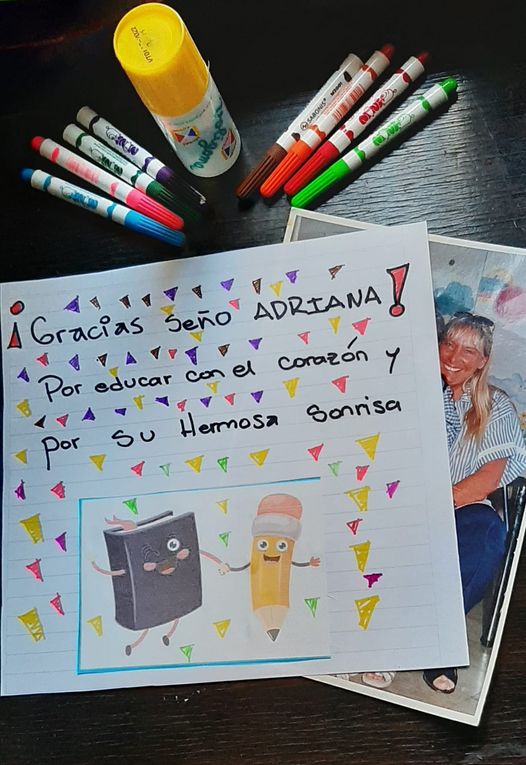 ¡Gracias Seño ADRIANA!
Por educar con el corazón y
por su Hermosa Sonrisa
SABONIS